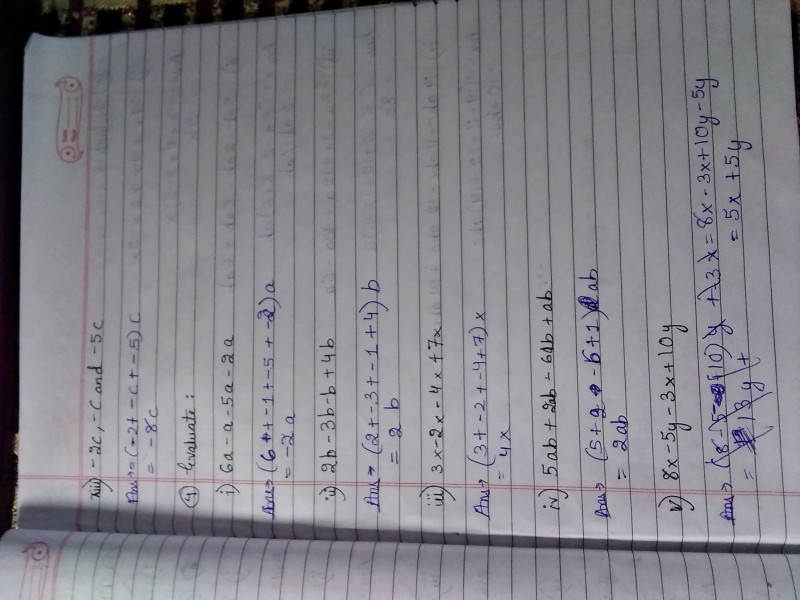 xiii) -2c, -c and -5c
Ans→ (-2+ -c + -5) c
= -8c
④ Evaluate :
i) 6a - a - 5a - 2a
Ans→ (6 + -1 + -5 + -2) a
= -2a
ii) 2b - 3b - b + 4b
Ans→ (2 + -3 + -1 + 4) b
= 2 b
iii) 3x - 2x - 4x + 7x
Ans→ (3 + -2 + -4 + 7) x
= 4x
iv) 5ab + 2ab - 6ab + ab
Ans→ (5 + 2 - 6 + 1) ab
= 2ab
v) 8x - 5y - 3x + 10y
Ans→ = 8x - 3x + 10y - 5y
= 5x + 5y